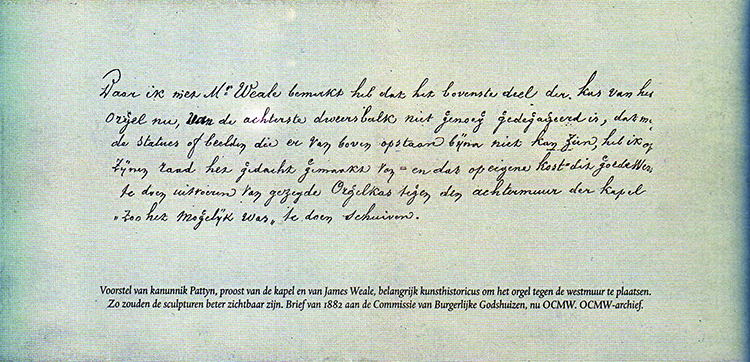 Daar ik met Mr Weale bemerkt heb dat het bovenste deel der kas van het
Orgel nu, van de achterste dweersbalk niet genoeg gedegageerd is, dat m
de statues of beelden die er van boven opstaan bijna niet kan zien, heb ik op
zijnen raad het gedacht gemaakt van en dat op eigene kost dit goede
te doen uitvoeren van gezegde Orgelkas tegen den achtermuur der kapel
"zoo het mogelijk was" te doen schuiven.
Voorstel van kanunnik Pattyn, proost van de kapel en van James Weale, belangrijk kunsthistoricus om het orgel tegen de westmuur te plaatsen.
Zo zouden de sculpturen beter zichtbaar zijn. Brief van 1882 aan de Commissie van Burgerlijke Godshuizen, nu OCMW. OCMW-archief.